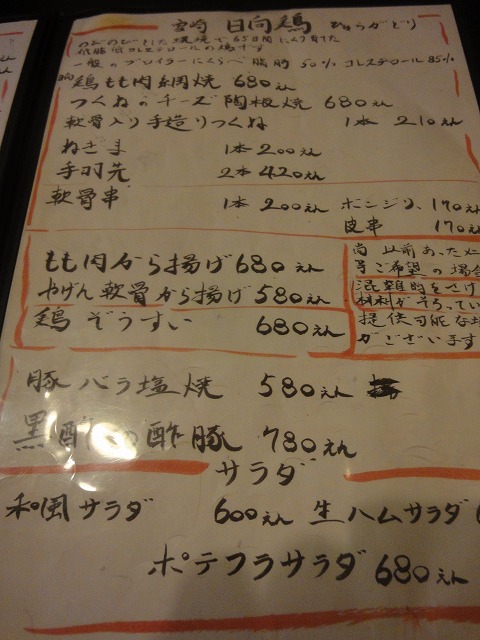 宮崎 日向鶏 ひゅうがどり
のびのびとした環境で65日間じっくり育てた
低脂肪低コレステロールの鶏です
一般のブロイラーにくらべ 脂肪50% コレステロール85%
鶏もも肉網焼 680えん
つくねのチーズ陶板焼 680えん
軟骨入り手造りつくね 1本 210えん
ねぎま 1本 200えん
手羽先 2本 420えん
軟骨串 1本 200えん ボンジリ 170えん
皮串 170えん
もも肉から揚げ 680えん
やげん軟骨から揚げ 580えん
鶏ぞうすい 680えん
尚 以前あった
等ご希望の場合
混雑時をさけ
材料がそろってい
提供可能な
がございます
豚バラ塩焼 580えん
黒酢の酢豚 780えん
サラダ
和風サラダ 600えん 生ハムサラダ
ポテフラサラダ 680えん